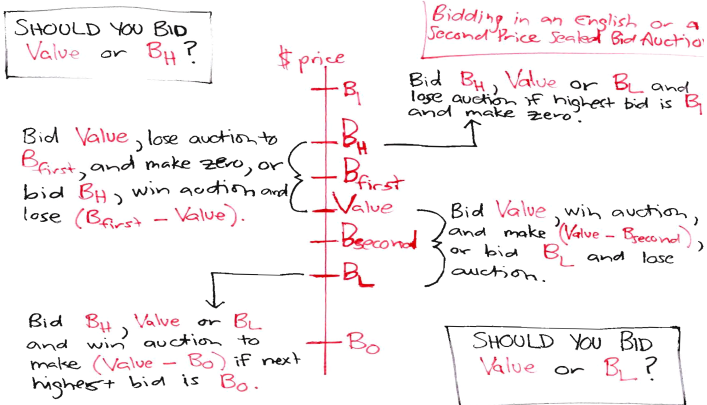 SHOULD YOU BID
Value or B_H?
Bidding in an English or a
Second Price Sealed Bid Auction
$ price
B_1
Bid B_H, Value or B_L and
lose auction if highest bid is B_1
and make zero.
Bid Value, lose auction to
B_first, and make zero, or
bid B_H, win auction and
lose (B_first - Value).
B_H
B_first
Value
B_second
B_L
Bid Value, win auction,
and make (Value - B_second),
or bid B_L and lose
auction.
Bid B_H, Value or B_L
and win auction to
make (Value - B_0) if next
highest bid is B_0.
B_0
SHOULD YOU BID
Value or B_L?